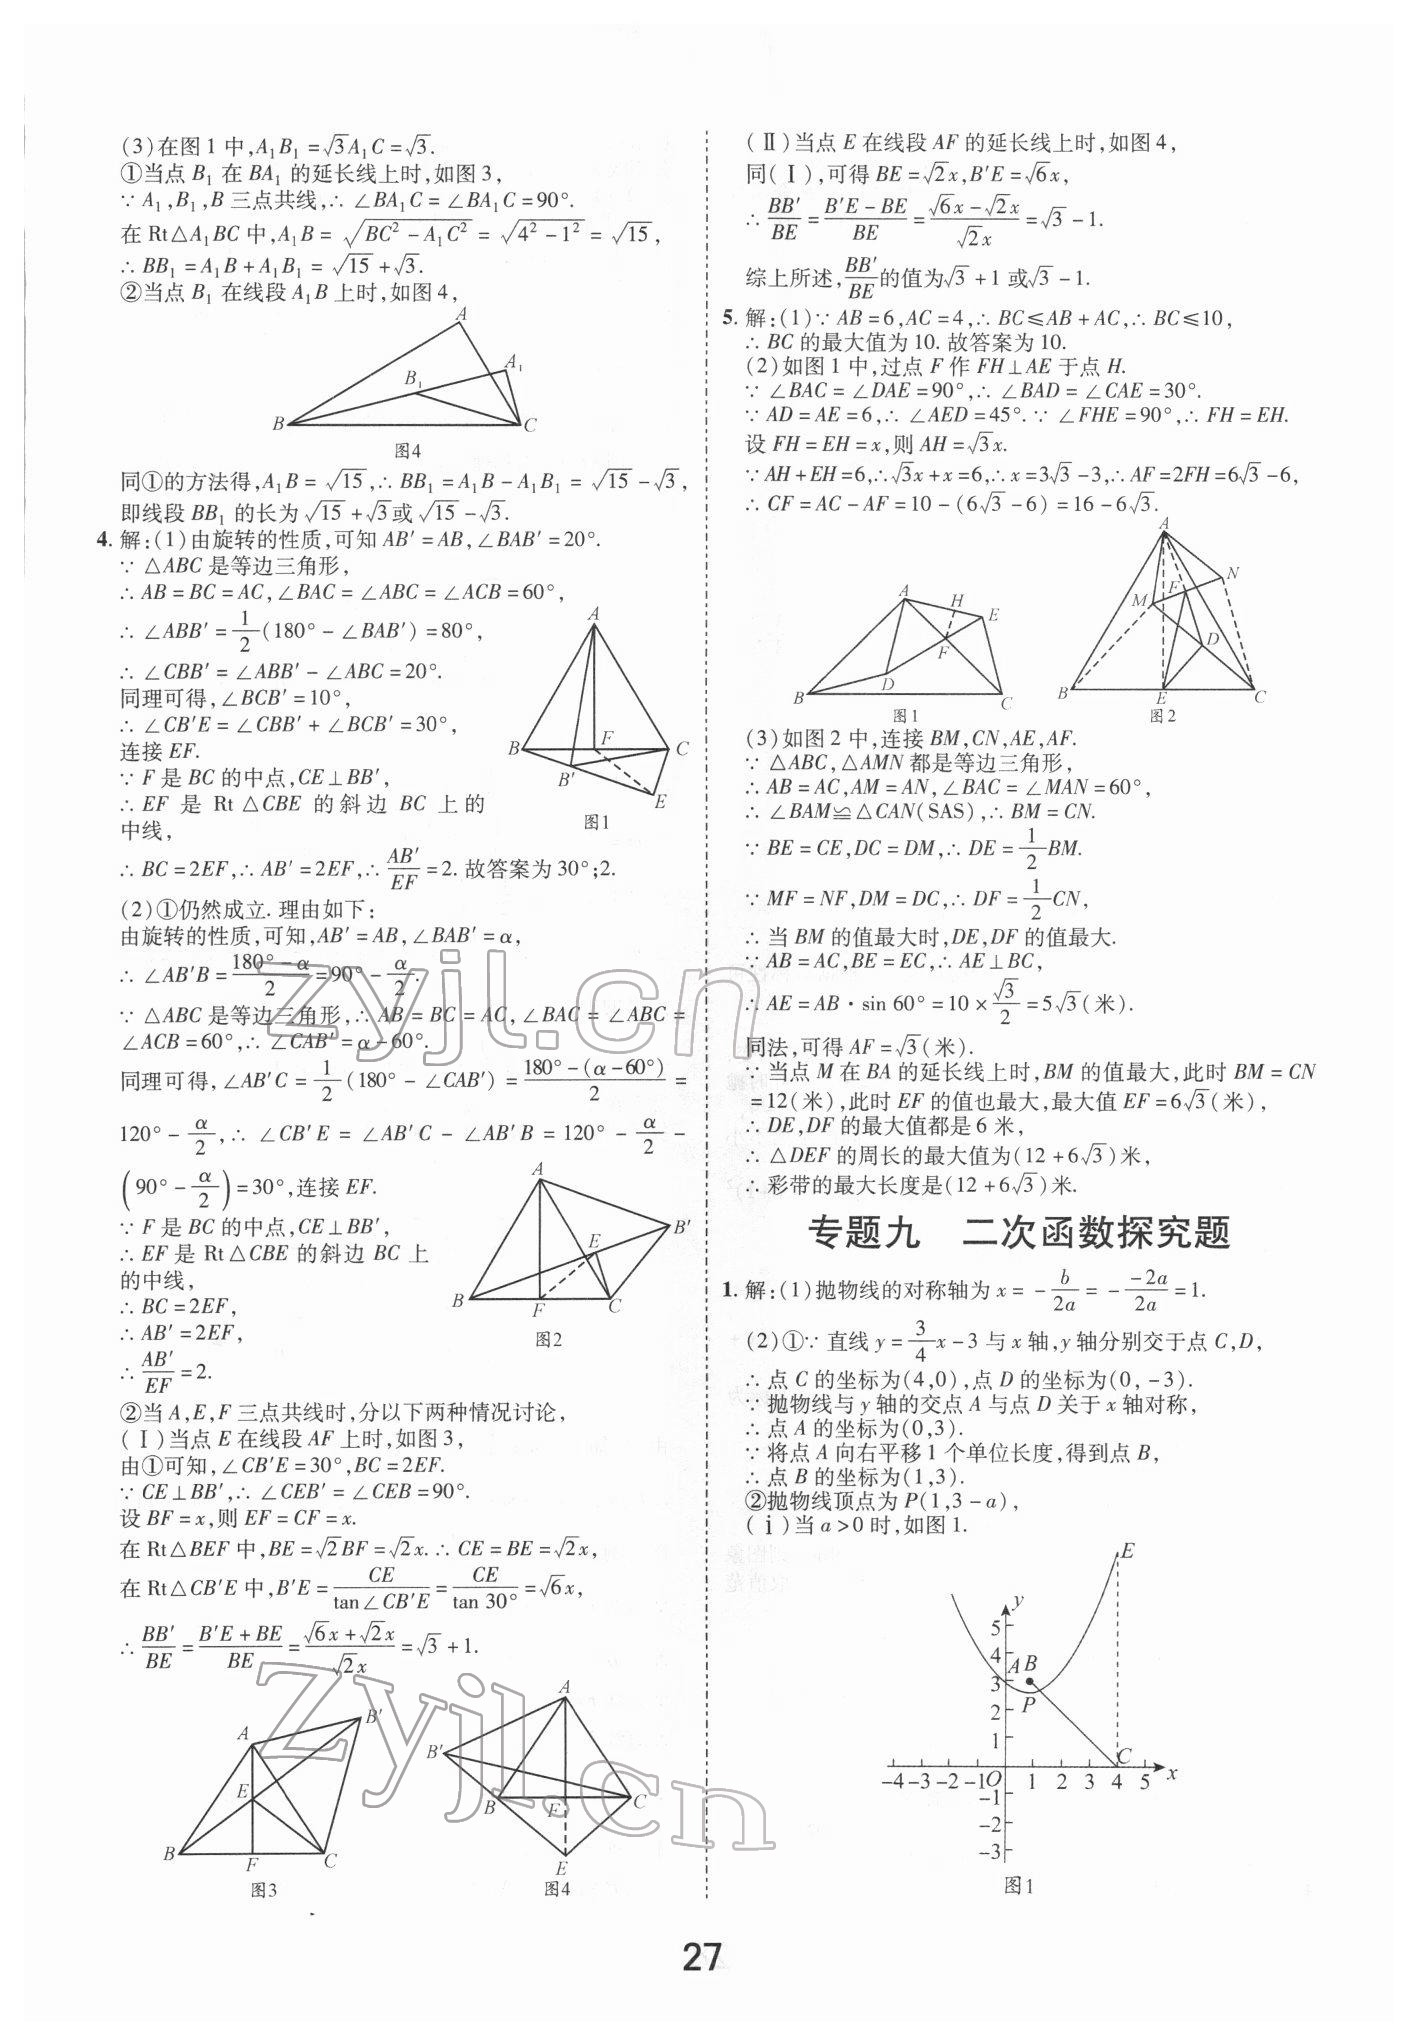 (3)在图1中,A₁B₁=√3A₁C=√3.
①当点B₁在BA₁的延长线上时,如图3,
∵A₁,B₁,B三点共线,∴∠BA₁C=∠BA₁C=90°.
在Rt△A₁BC中,A₁B=√(BC²-A₁C²)=√(4²-1²)=√15,
∴BB₁=A₁B+A₁B₁=√15+√3.
②当点B₁在线段A₁B上时,如图4,
A
A₁
B₁
B
C
图4
同①的方法得,A₁B=√15,∴BB₁=A₁B-A₁B₁=√15-√3,
即线段BB₁的长为√15+√3或√15-√3.
4. 解:(1)由旋转的性质,可知AB′=AB,∠BAB′=20°.
∵△ABC是等边三角形,
∴AB=BC=AC,∠BAC=∠ABC=∠ACB=60°,
∴∠ABB′=1/2(180°-∠BAB′)=80°,
∴∠CBB′=∠ABB′-∠ABC=20°.
同理可得,∠BCB′=10°,
∴∠CB′E=∠CBB′+∠BCB′=30°,
连接EF.
∵F是BC的中点,CE⊥BB′,
∴EF是Rt△CBE的斜边BC上的
中线,
A
B
F
C
B′
E
图1
∴BC=2EF,∴AB′=2EF,∴AB′/EF=2.故答案为30°;2.
(2)①仍然成立.理由如下:
由旋转的性质,可知,AB′=AB,∠BAB′=α,
∴∠AB′B=(180°-α)/2=90°-α/2.
∵△ABC是等边三角形,∴AB=BC=AC,∠BAC=∠ABC=
∠ACB=60°,∴∠CAB′=α-60°.
同理可得,∠AB′C=1/2(180°-∠CAB′)=(180°-(α-60°))/2=
120°-α/2,∴∠CB′E=∠AB′C-∠AB′B=120°-α/2-
(90°-α/2)=30°,连接EF.
∵F是BC的中点,CE⊥BB′,
∴EF是Rt△CBE的斜边BC上
的中线,
∴BC=2EF,
∴AB′=2EF,
∴AB′/EF=2.
A
B′
E
B
F
C
图2
②当A,E,F三点共线时,分以下两种情况讨论,
(Ⅰ)当点E在线段AF上时,如图3,
由①可知,∠CB′E=30°,BC=2EF.
∵CE⊥BB′,∴∠CEB′=∠CEB=90°.
设BF=x,则EF=CF=x.
在Rt△BEF中,BE=√2BF=√2x.∴CE=BE=√2x,
在Rt△CB′E中,B′E=CE/tan∠CB′E=CE/tan 30°=√6x,
∴BB′/BE=(B′E+BE)/BE=(√6x+√2x)/√2x=√3+1.
A
B′
E
B
F
C
图3
A
B′
B
F
C
E
图4
(Ⅱ)当点E在线段AF的延长线上时,如图4,
同(Ⅰ),可得BE=√2x,B′E=√6x,
∴BB′/BE=(B′E-BE)/BE=(√6x-√2x)/√2x=√3-1.
综上所述,BB′/BE的值为√3+1或√3-1.
5. 解:(1)∵AB=6,AC=4,∴BC≤AB+AC,∴BC≤10,
∴BC的最大值为10.故答案为10.
(2)如图1中,过点F作FH⊥AE于点H.
∵∠BAC=∠DAE=90°,∴∠BAD=∠CAE=30°.
∵AD=AE=6,∴∠AED=45°.∵∠FHE=90°,∴FH=EH.
设FH=EH=x,则AH=√3x.
∵AH+EH=6,∴√3x+x=6,∴x=3√3-3,∴AF=2FH=6√3-6,
∴CF=AC-AF=10-(6√3-6)=16-6√3.
A
H
E
F
D
B
C
图1
A
N
F
M
D
B
E
C
图2
(3)如图2中,连接BM,CN,AE,AF.
∵△ABC,△AMN都是等边三角形,
∴AB=AC,AM=AN,∠BAC=∠MAN=60°,
∴∠BAM≌△CAN(SAS),∴BM=CN.
∵BE=CE,DC=DM,∴DE=1/2BM.
∵MF=NF,DM=DC,∴DF=1/2CN,
∴当BM的值最大时,DE,DF的值最大.
∵AB=AC,BE=EC,∴AE⊥BC,
∴AE=AB·sin 60°=10×√3/2=5√3(米).
同法,可得AF=√3(米).
∵当点M在BA的延长线上时,BM的值最大,此时BM=CN
=12(米),此时EF的值也最大,最大值EF=6√3(米),
∴DE,DF的最大值都是6米,
∴△DEF的周长的最大值为(12+6√3)米,
∴彩带的最大长度是(12+6√3)米.
专题九 二次函数探究题
1. 解:(1)抛物线的对称轴为x=-b/2a=-(-2a)/2a=1.
(2)①∵直线y=3/4x-3与x轴,y轴分别交于点C,D,
∴点C的坐标为(4,0),点D的坐标为(0,-3).
∵抛物线与y轴的交点A与点D关于x轴对称,
∴点A的坐标为(0,3).
∵将点A向右平移1个单位长度,得到点B,
∴点B的坐标为(1,3).
②抛物线顶点为P(1,3-a),
(ⅰ)当a>0时,如图1.
E
y
5
4
3
2
1
A B
P
C
-4 -3 -2 -1 O 1 2 3 4 5 x
-1
-2
-3
图1
zyjl.cn
zyjl.cn
27